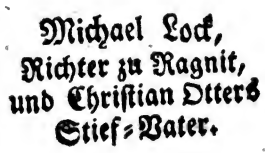 Michael Lock,
Richter zu Ragnit,
und Christian Otters
Stief-Vater.